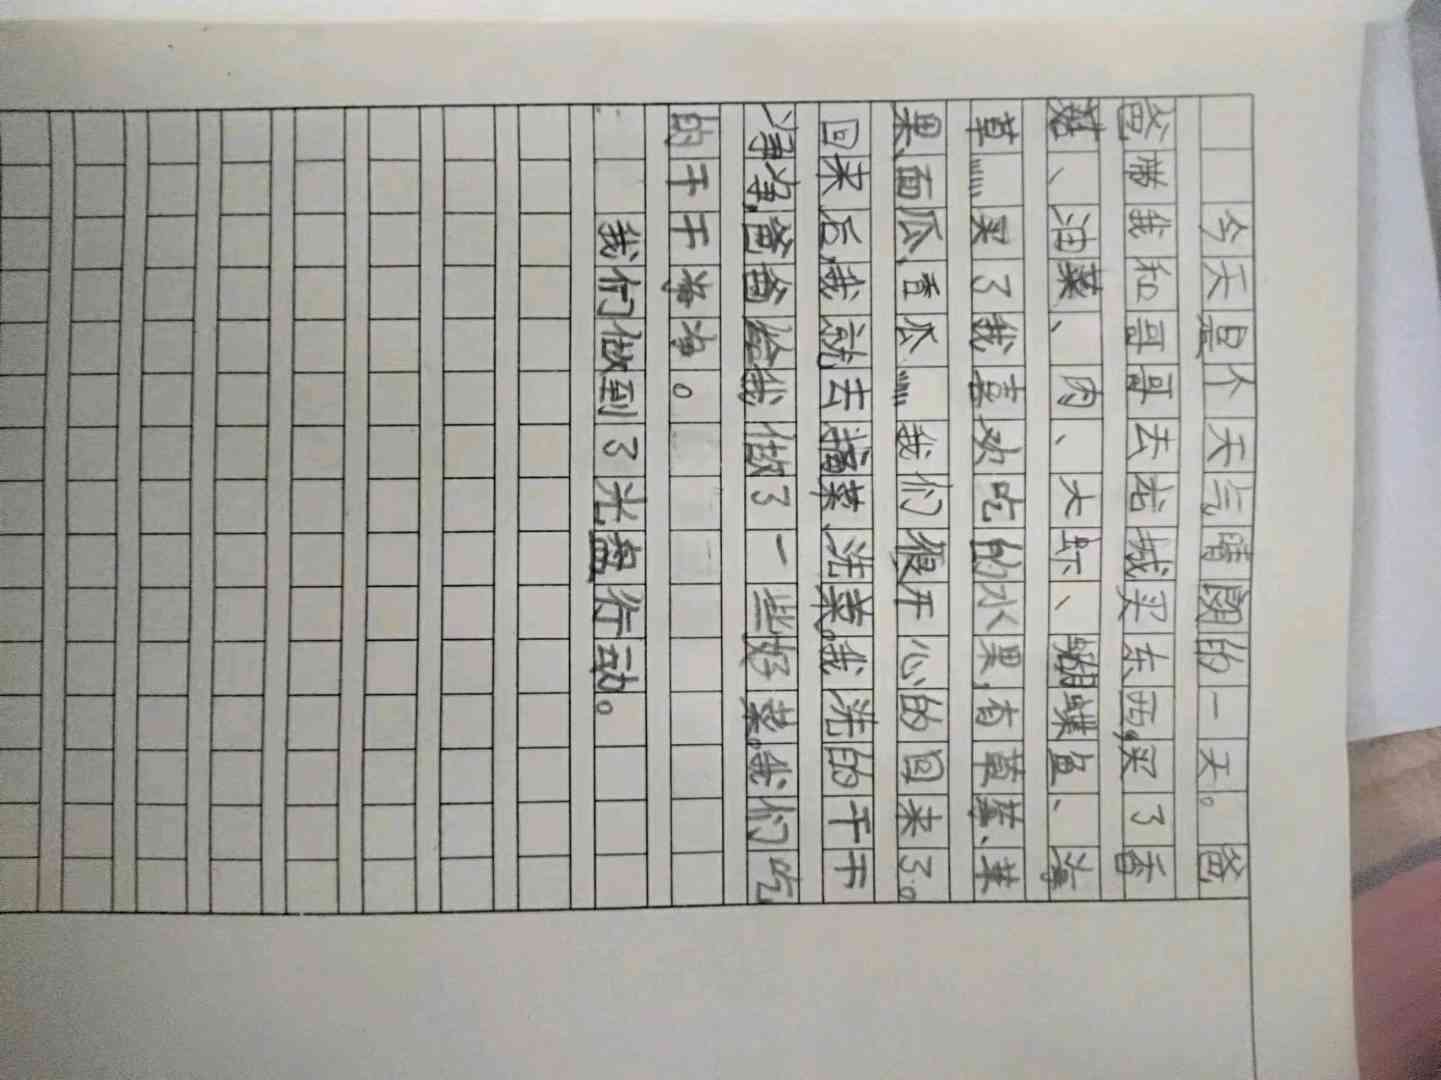 今天是个天气晴朗的一天。爸
爸带我和哥哥去龙城买东西，买了香
菇、油菜、肉、大虾、蝴蝶鱼、海
草……买了我喜欢吃的水果，有草莓、苹
果、面瓜、香瓜……我们很开心的回来了。
回来后，我就去摘菜、洗菜。我洗的干干
净净，爸爸给我做了一些好菜。我们吃
的干干净净。
我们做到了光盘行动。